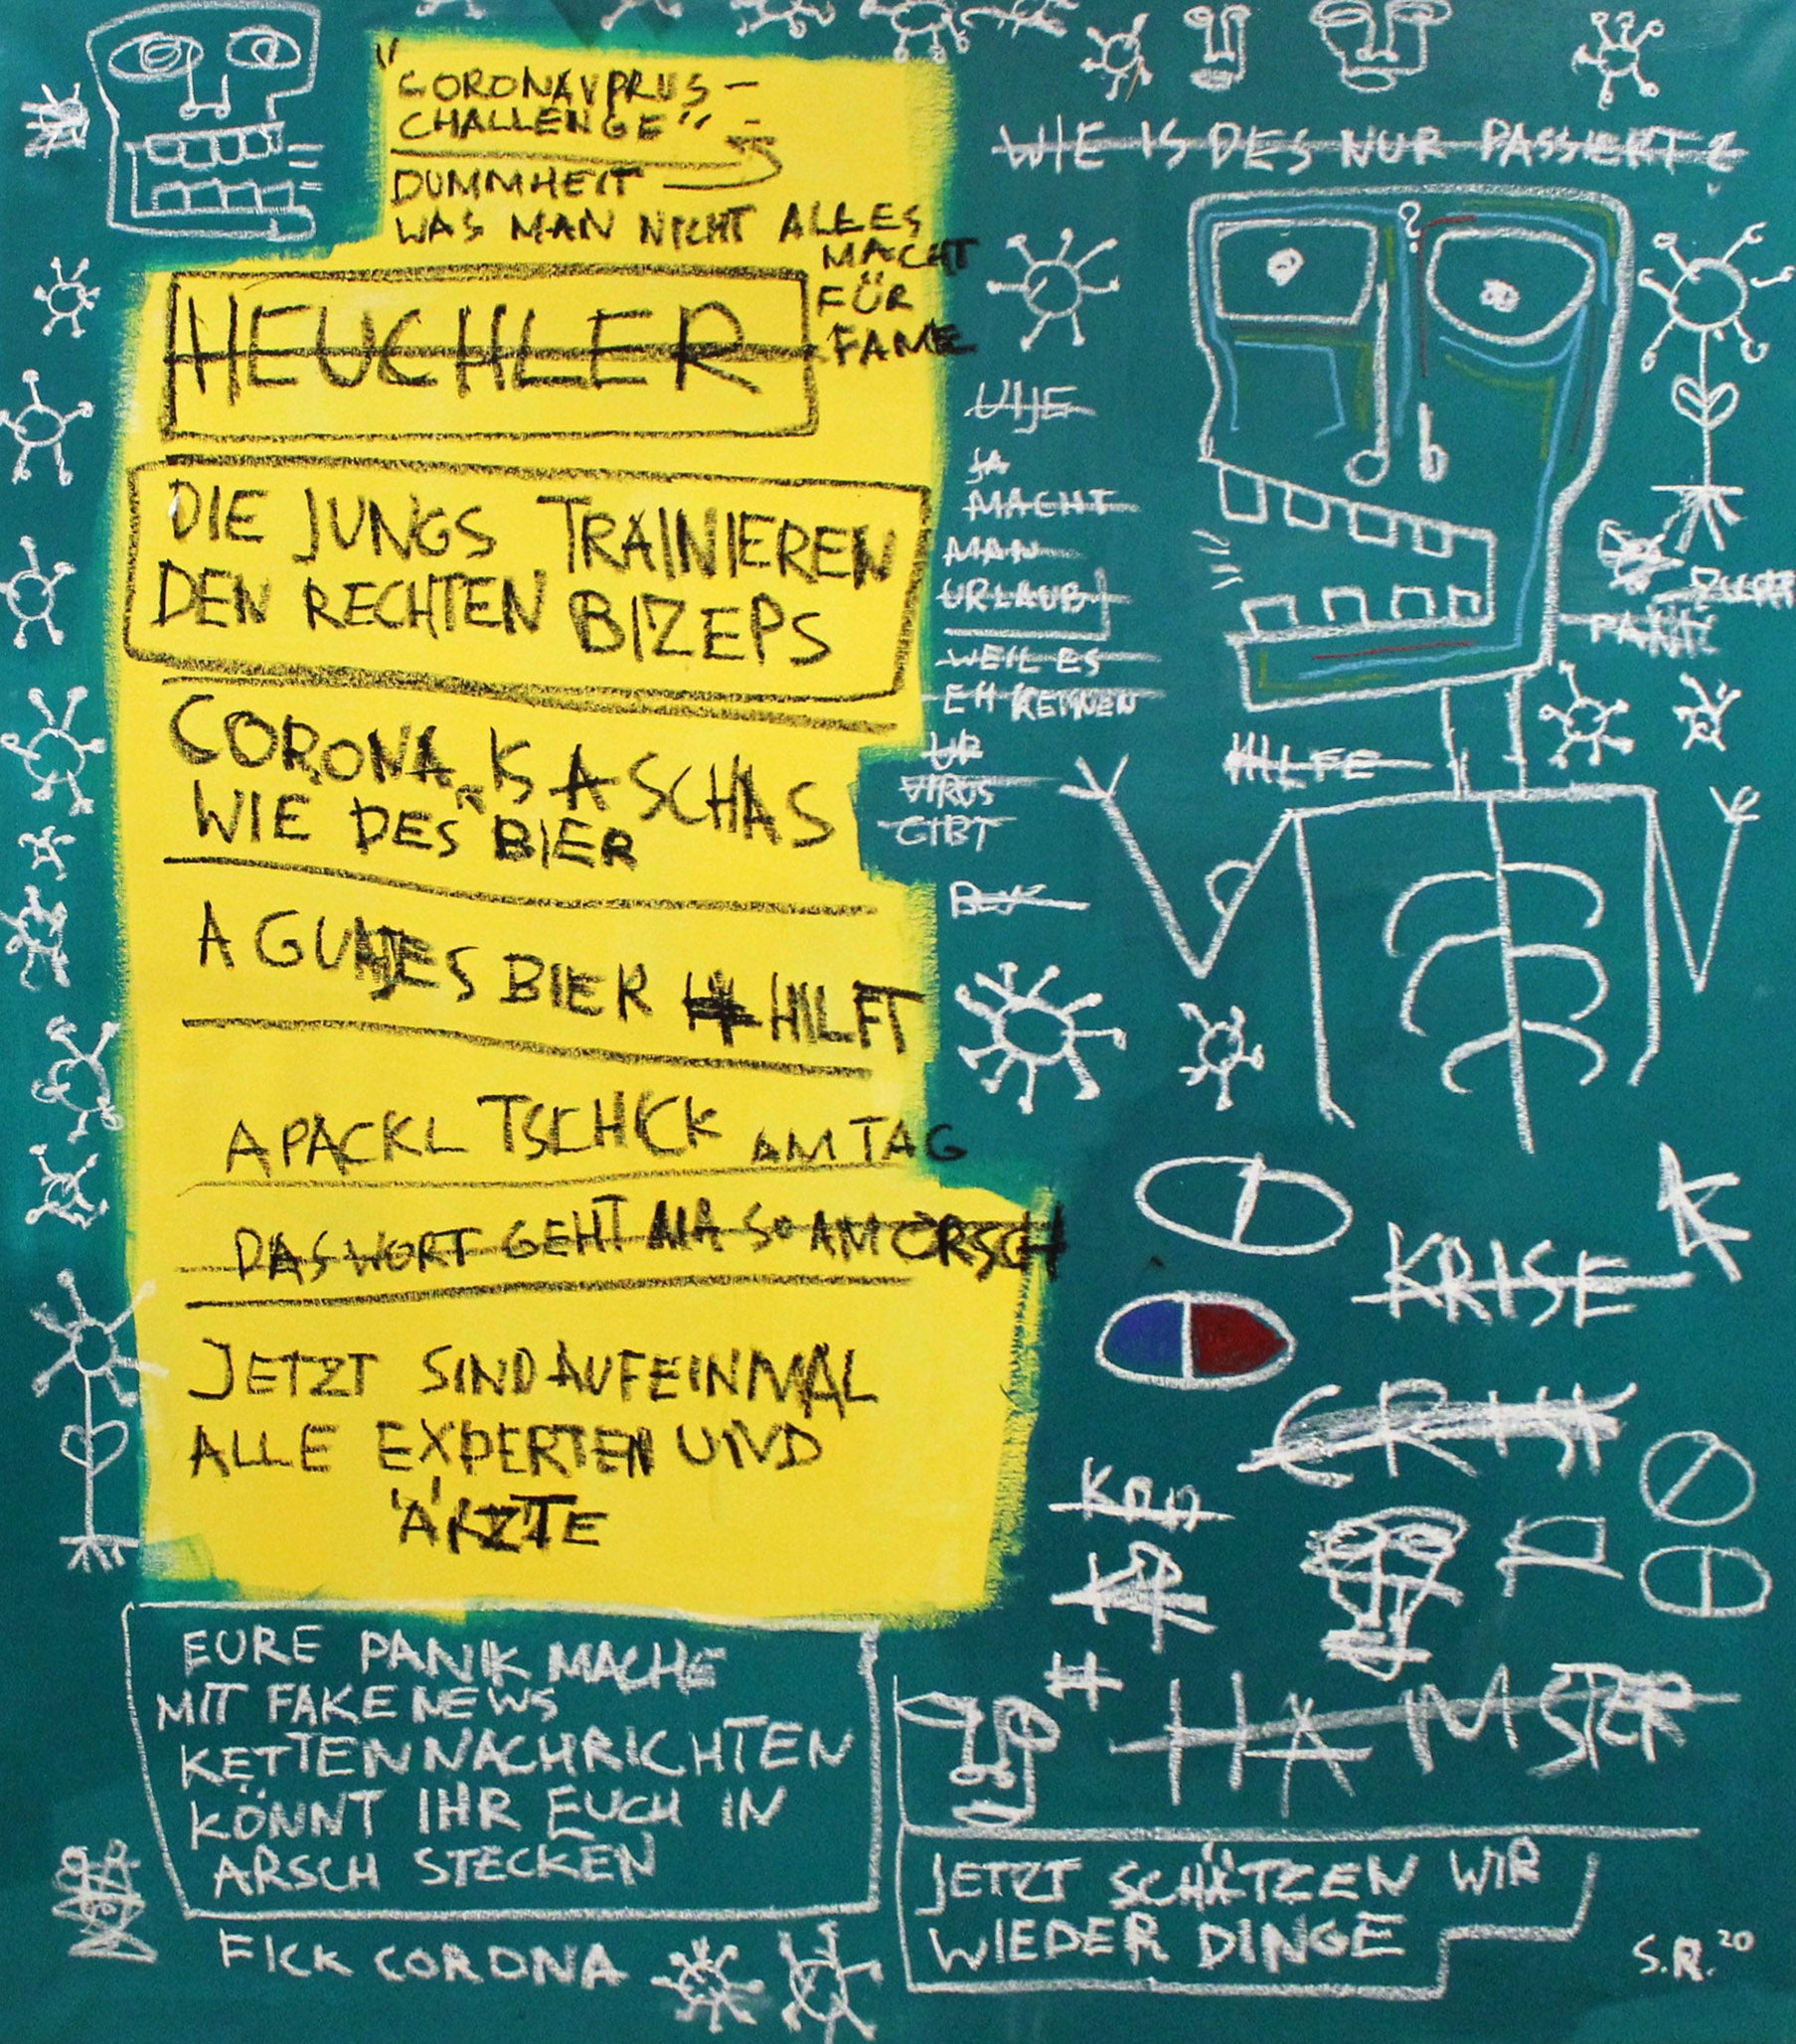 "CORONAVPRUS-
CHALLENGE"
DUMMHEIT
WAS MAN NICHT ALLES
MACHT
FÜR
FAME
HEUCHLER
DIE JUNGS TRAINIEREN
DEN RECHTEN BIZEPS
CORONA IS A SCHAS
WIE DES BIER
A GUADES BIER HILFT
A PACKL TSCHICK AM TAG
DAS WORT GEHT MA SO AM ORSCH
JETZT SIND AUFEINMAL
ALLE EXPERTEN UND
ÄRZTE
EURE PANIKMACHE
MIT FAKENEWS
KETTENNACHRICHTEN
KÖNNT IHR EUCH IN
ARSCH STECKEN
FICK CORONA
WIE IS DES NUR PASSIERT?
?
UIJE
JA
MACHT
MAN
URLAUB
WEIL ES
EH KEINEN
UR
VIRUS
GIBT
PANIK
HILFE
K
KRISE
KR
#
HAMSTER
JETZT SCHÄTZEN WIR
WIEDER DINGE
S.R.20